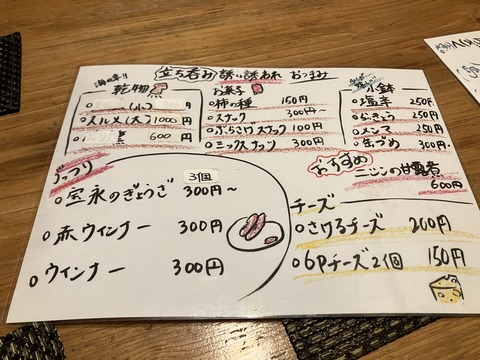 立ち呑み 誘い誘われ おつまみ
乾物
スルメ(大) 1000円
600円
お菓子
○柿の種 150円
○スナック 300円〜
○ぶらさげスナック 100円
○ミックスナッツ 300円
小鉢
○塩辛 250円
○らっきょう 250円
○メンマ 250円
○缶づめ 300円〜
おすすめ
ニシンの甘露煮
600円
がっつり
3個
○宝永のぎょうざ 300円〜
○赤ウィンナー 300円
○ウィンナー 300円
チーズ
○さけるチーズ 200円
○6Pチーズ2個 150円